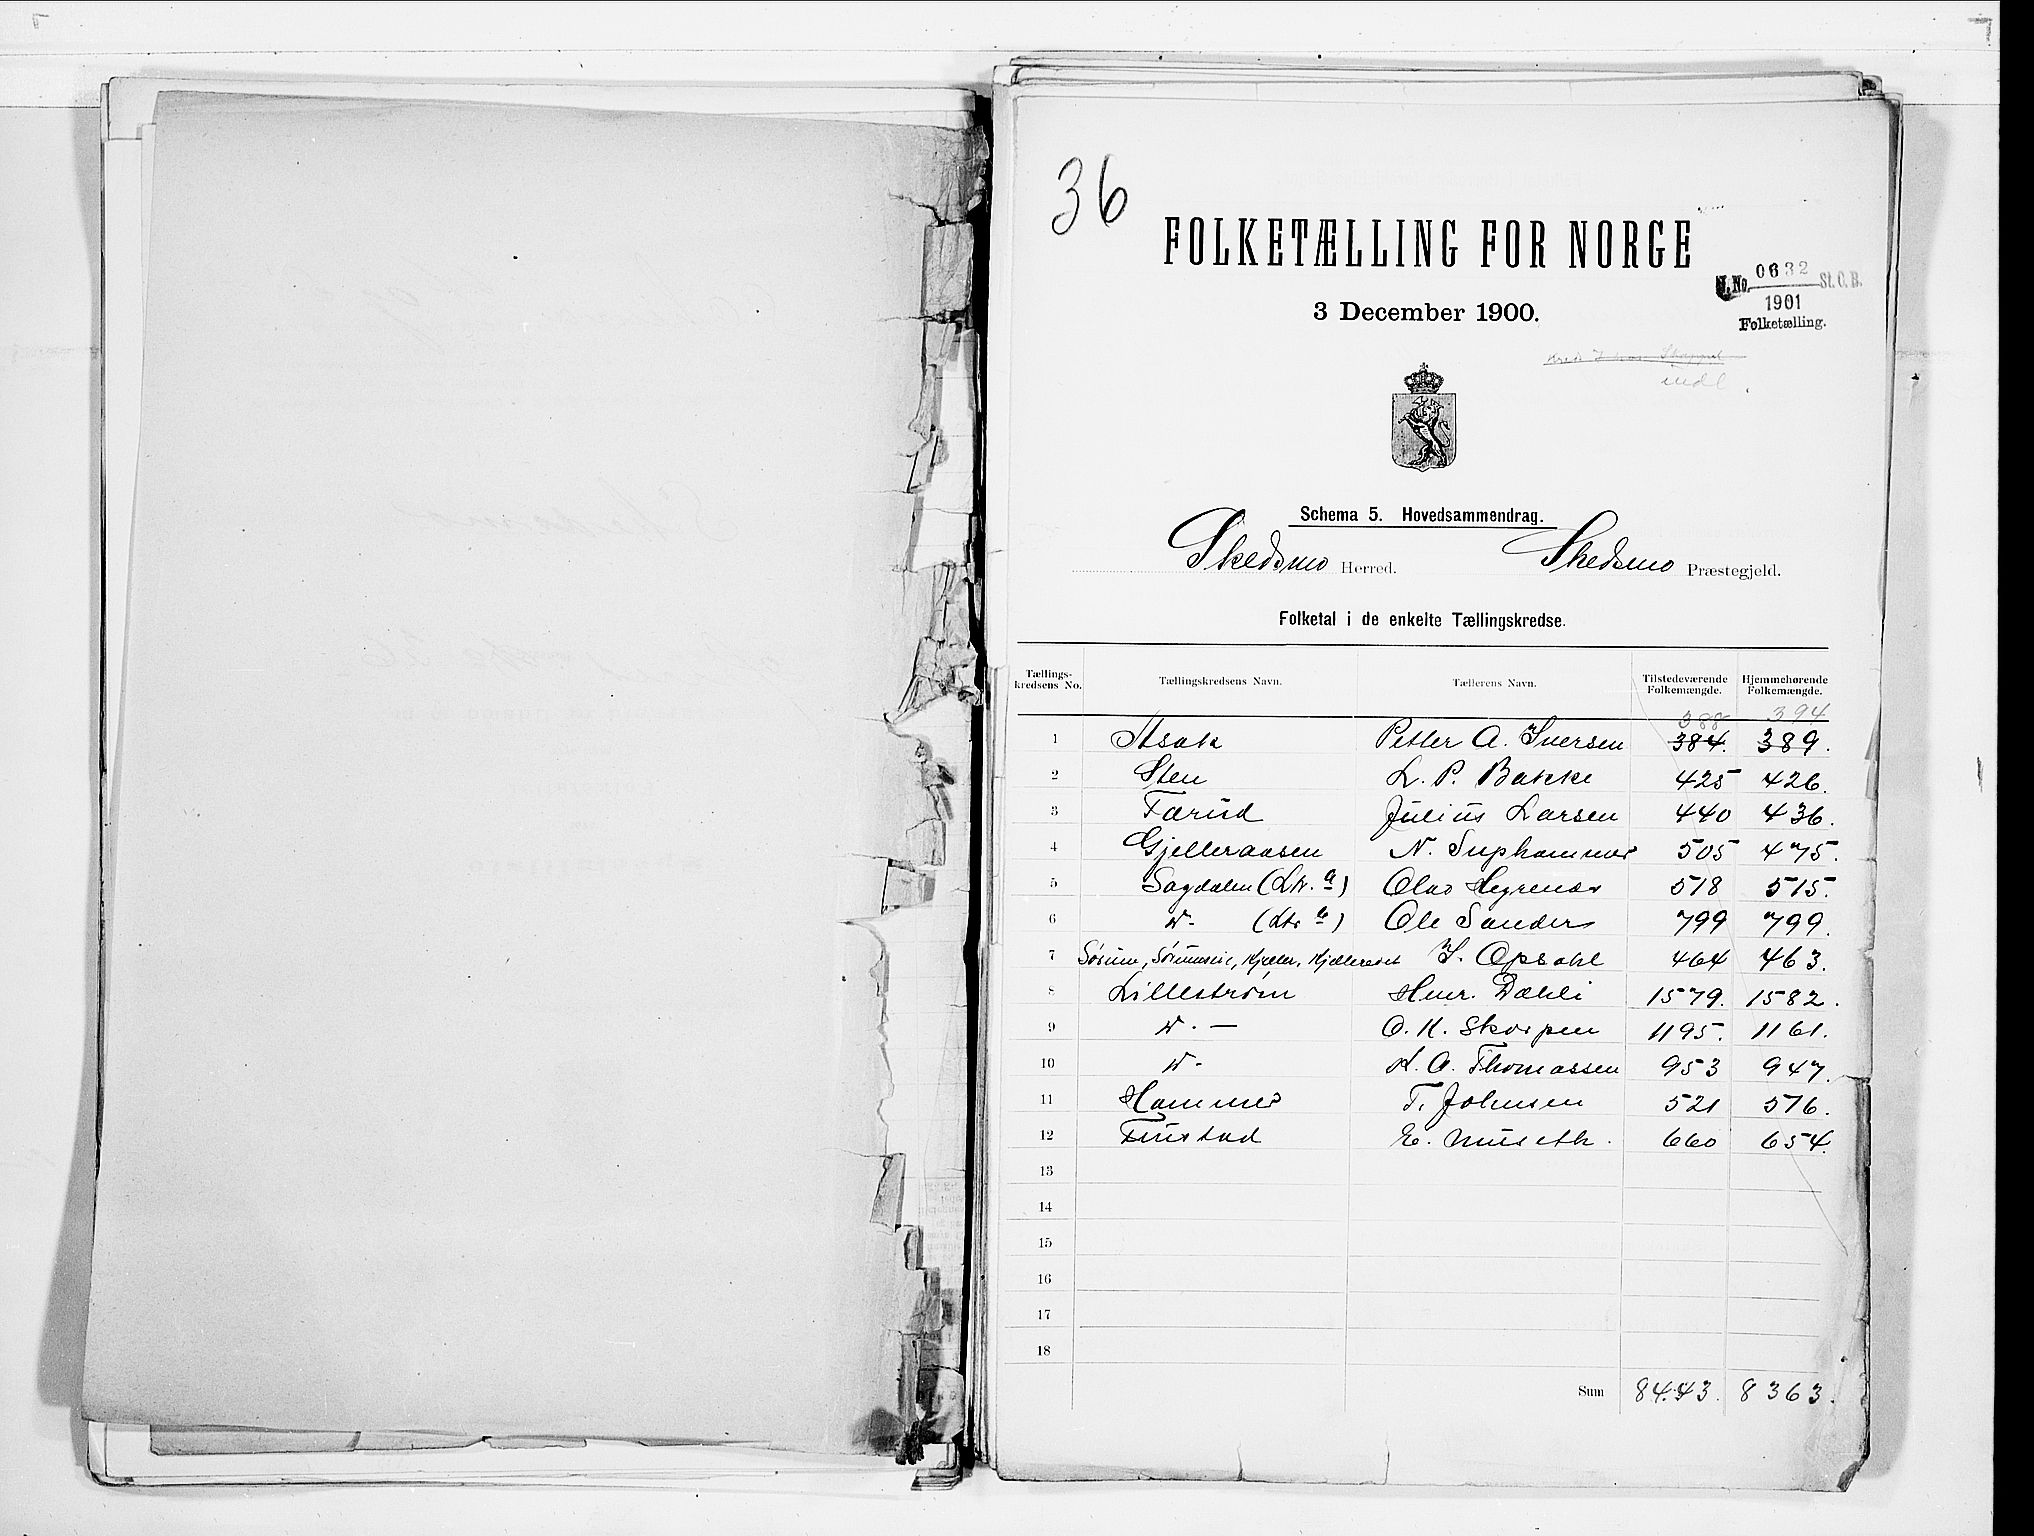 36
FOLKETÆLLING FOR NORGE
J. No. 0632 St. O. B.
1901
Folketælling.
3 December 1900.
indl
Schema 5. Hovedsammendrag.
Skedsmo Herred. Skedsmo Præstegjeld.
Folketal i de enkelte Tællingskredse.
Tællings-kredsens No. Tællingskredsens Navn. Tællerens Navn. Tilstedeværende Folkemængde. Hjemmehørende Folkemængde.
388 394
1 Asak Petter A. Iversen 384. 389.
2 Sten L. P. Bakke 425 426.
3 Farud Julius Larsen 440 436.
4 Gjelleraasen N. 505 475.
5 Sagdalen (Ltr. a) Olav 518 515.
6 " - (Ltr b) Ole Sander 799 799.
7 Sørum, Kjeller, I. Opsahl 464 463.
8 Lillestrøm Hner. Dæhli 1579. 1582.
9 " . — O. K. Skarpen 1195. 1161.
10 " - K. A. Thomassen 953 947.
11 Hammer T. Johnsen 521 516.
12 Finstad E. Museth. 660 654.
13
14
15
16
17
18
Sum 8443. 8363.